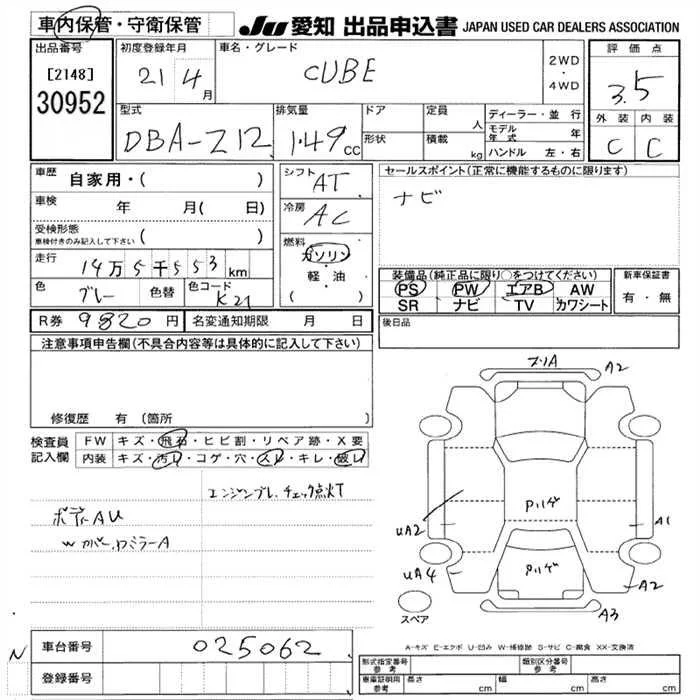 車内保管・守衛保管
JU 愛知 出品申込書 JAPAN USED CAR DEALERS ASSOCIATION
出品番号
[2148]
30952
初度登録年月
21 4月
車名・グレード
CUBE
2WD
・
4WD
評価点
3.5
外装 内装
C C
型式
DBA-Z12
排気量
1.49cc
ドア
形状
定員 人
積載 kg
ディーラー・並行
モデル年式 年
ハンドル 左・右
車歴 自家用・( )
車検 年 月( 日)
受検形態
車検付きのみ記入して下さい ( )
走行 14万5千553km
色 グレー 色替 色コード K21
シフト AT
冷房 AC
燃料
ガソリン
・
軽・油
( )
セールスポイント(正常に機能するものに限ります)
ナビ
装備品(純正品に限り○をつけてください)
PS PW エアB AW
SR ナビ TV カワシート
新車保証書
有・無
後日品
R券 9820円 名変通知期限 月 日
注意事項申告欄(不具合内容等は具体的に記入して下さい)
修復歴 有(箇所 )
検査員記入欄
FW キズ・飛石・ヒビ割・リペア跡・X要
内装 キズ・汚レ・コゲ・穴・スレ・キレ・破レ
エンジンブレ、チェック点灯
ボディAU
Wカバー、ワミラーA
A2
A1
UA2
Pハゲ
UA4
Pハゲ
A2
A3
スペア
A-キズ E-エクボ U-凹み W-補修跡 S-サビ C-腐食 XX-交換済
N
車台番号 025062
登録番号
型式指定番号 参考
類別区分番号 参考
車庫証明用 参考 長さ cm 幅 cm 高さ cm